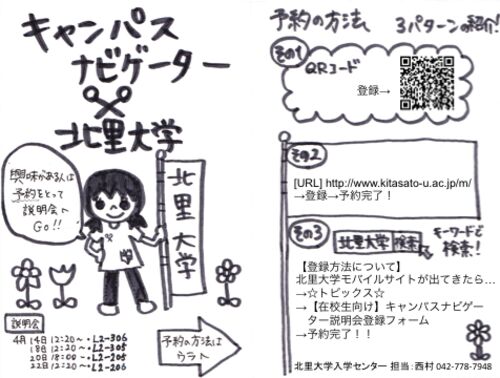 キャンパス
ナビゲーター
×
北里大学
興味がある人は
予約をとって
説明会へ
GO!!
北里大学
説明会
4月14日 12:20〜・L2-306
18日 12:20〜・L2-305
20日 18:00〜・L2-205
22日 12:20〜・L2-206
予約の方法は
ウラへ
予約の方法 3パターンの紹介!
その1
QRコード
登録→
その2
[URL] http://www.kitasato-u.ac.jp/m/
→登録→予約完了！
その3
北里大学 検索
キーワードで
検索!
【登録方法について】
北里大学モバイルサイトが出てきたら…
→☆トピックス☆
→【在校生向け】キャンパスナビゲー
ター説明会登録フォーム
→予約完了！！
北里大学入学センター 担当：西村 042-778-7948